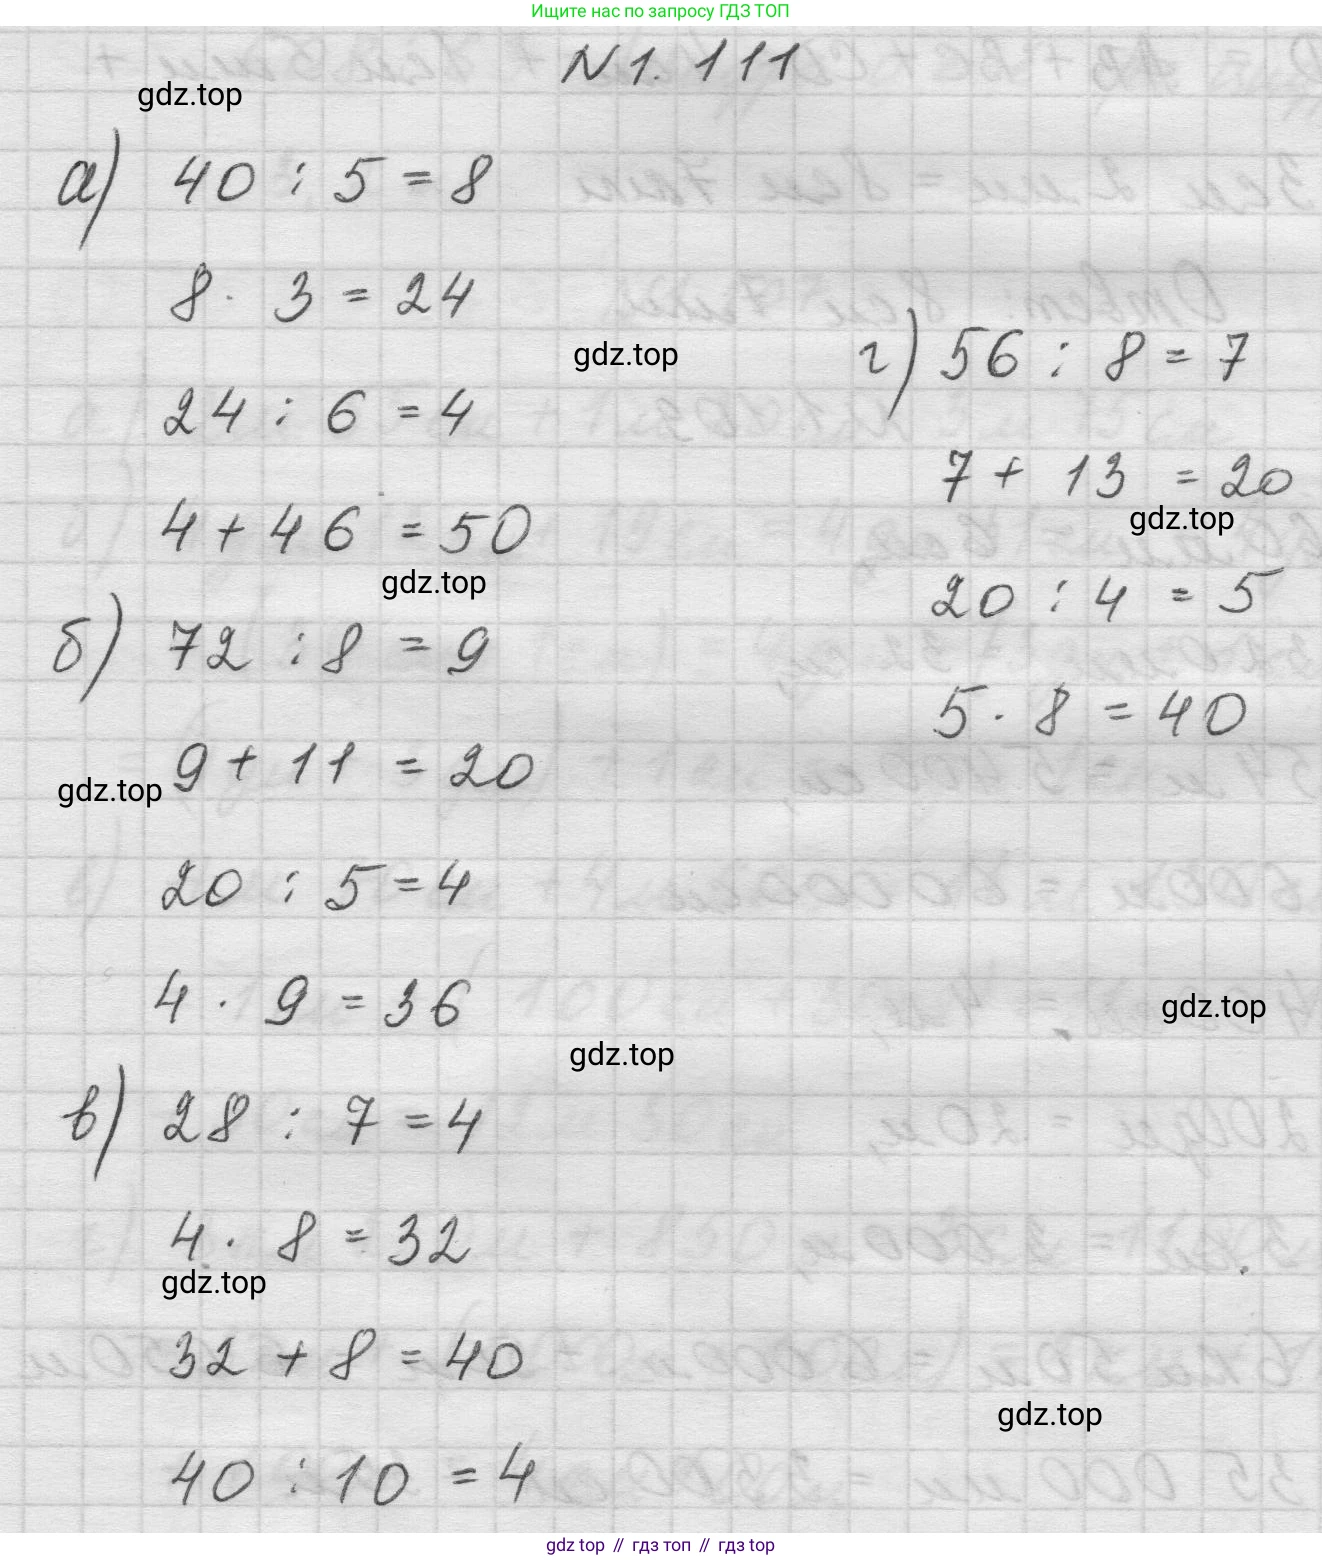 Ищите нас по запросу ГДЗ ТОП
N 1. 111
gdz.top
а) 40 : 5 = 8
8 · 3 = 24
gdz.top
24 : 6 = 4
4 + 46 = 50
gdz.top
б) 72 : 8 = 9
9 + 11 = 20
gdz.top
20 : 5 = 4
4 · 9 = 36
gdz.top
в) 28 : 7 = 4
4 · 8 = 32
gdz.top
32 + 8 = 40
40 : 10 = 4
г) 56 : 8 = 7
7 + 13 = 20
gdz.top
20 : 4 = 5
5 · 8 = 40
gdz.top
gdz.top
gdz top // гдз топ // gdz top